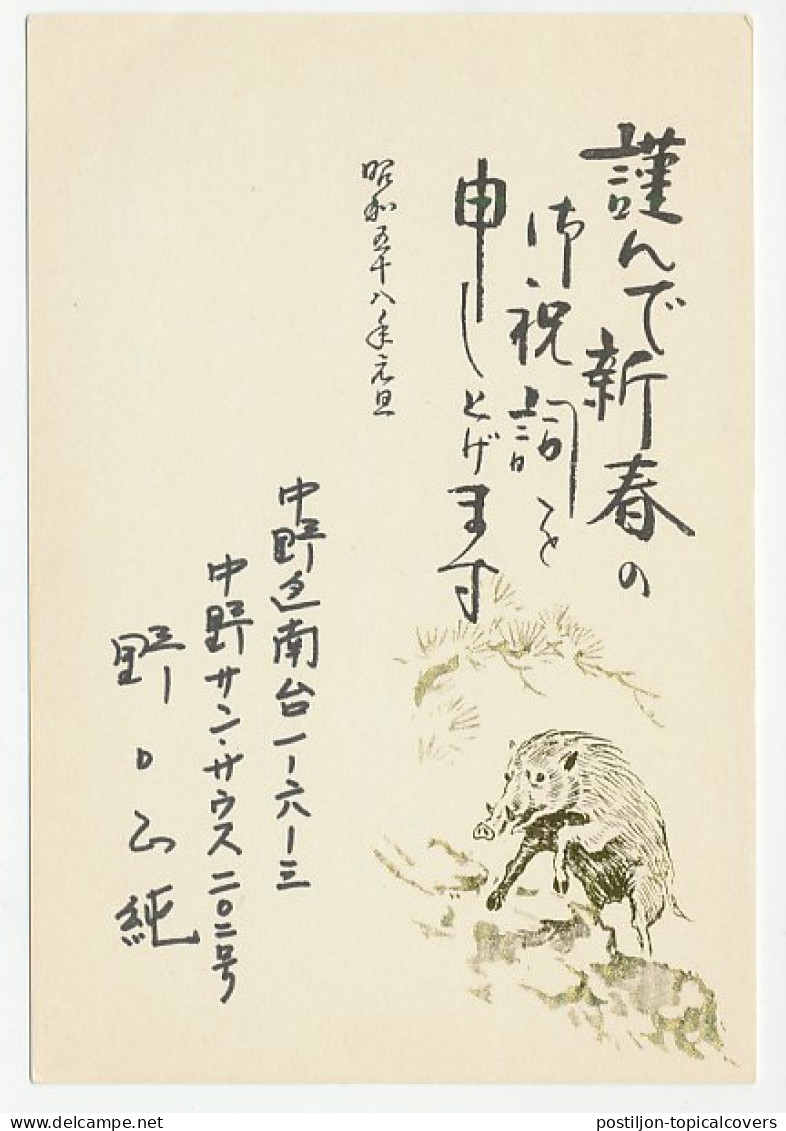 謹んで新春の
御祝詞を
申し上げます
昭和五十八年元旦
中野区南台一ー六ー三
中野サン・サウス二〇二号
野口正純
postiljon-topicalcovers